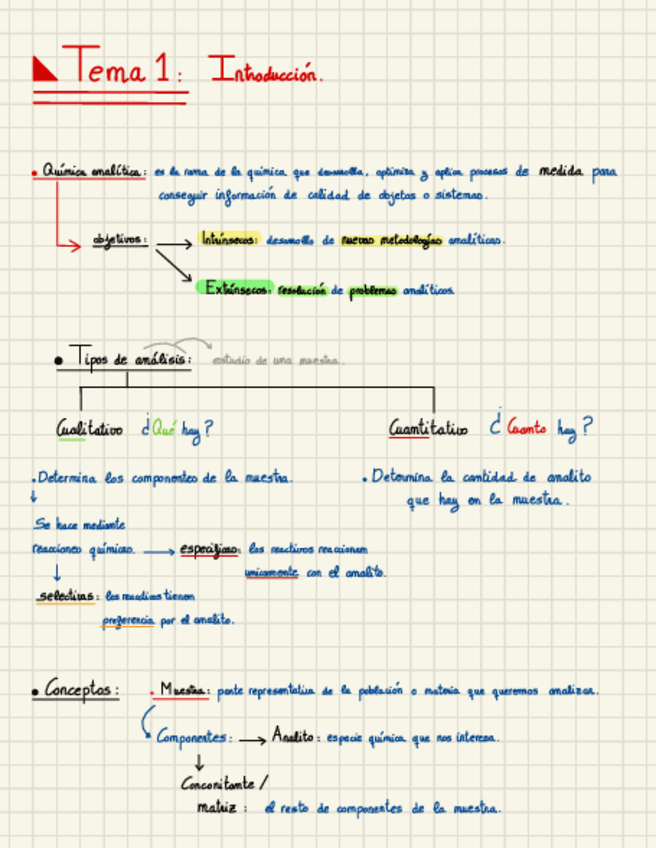 Tema 1: Introducción.
• Química analítica: es la rama de la química que desarrolla, optimiza y aplica procesos de medida para
conseguir información de calidad de objetos o sistemas.
objetivos: → Intrínsecos: desarrollo de nuevas metodologías analíticas.
Extrínsecos: resolución de problemas analíticos.
• Tipos de análisis: estudio de una muestra.
Cualitativo ¿Qué hay?
Cuantitativo ¿Cuanto hay?
• Determina los componentes de la muestra.
• Determina la cantidad de analito
que hay en la muestra.
Se hace mediante
reacciones químicas. → específicas: los reactivos reaccionan
unicamente con el analito.
selectivas: los reactivos tienen
preferencia por el analito.
• Conceptos: • Muestra: parte representativa de la población o materia que queremos analizar.
Componentes: → Analito: especie química que nos interesa.
Concomitante /
matriz: el resto de componentes de la muestra.